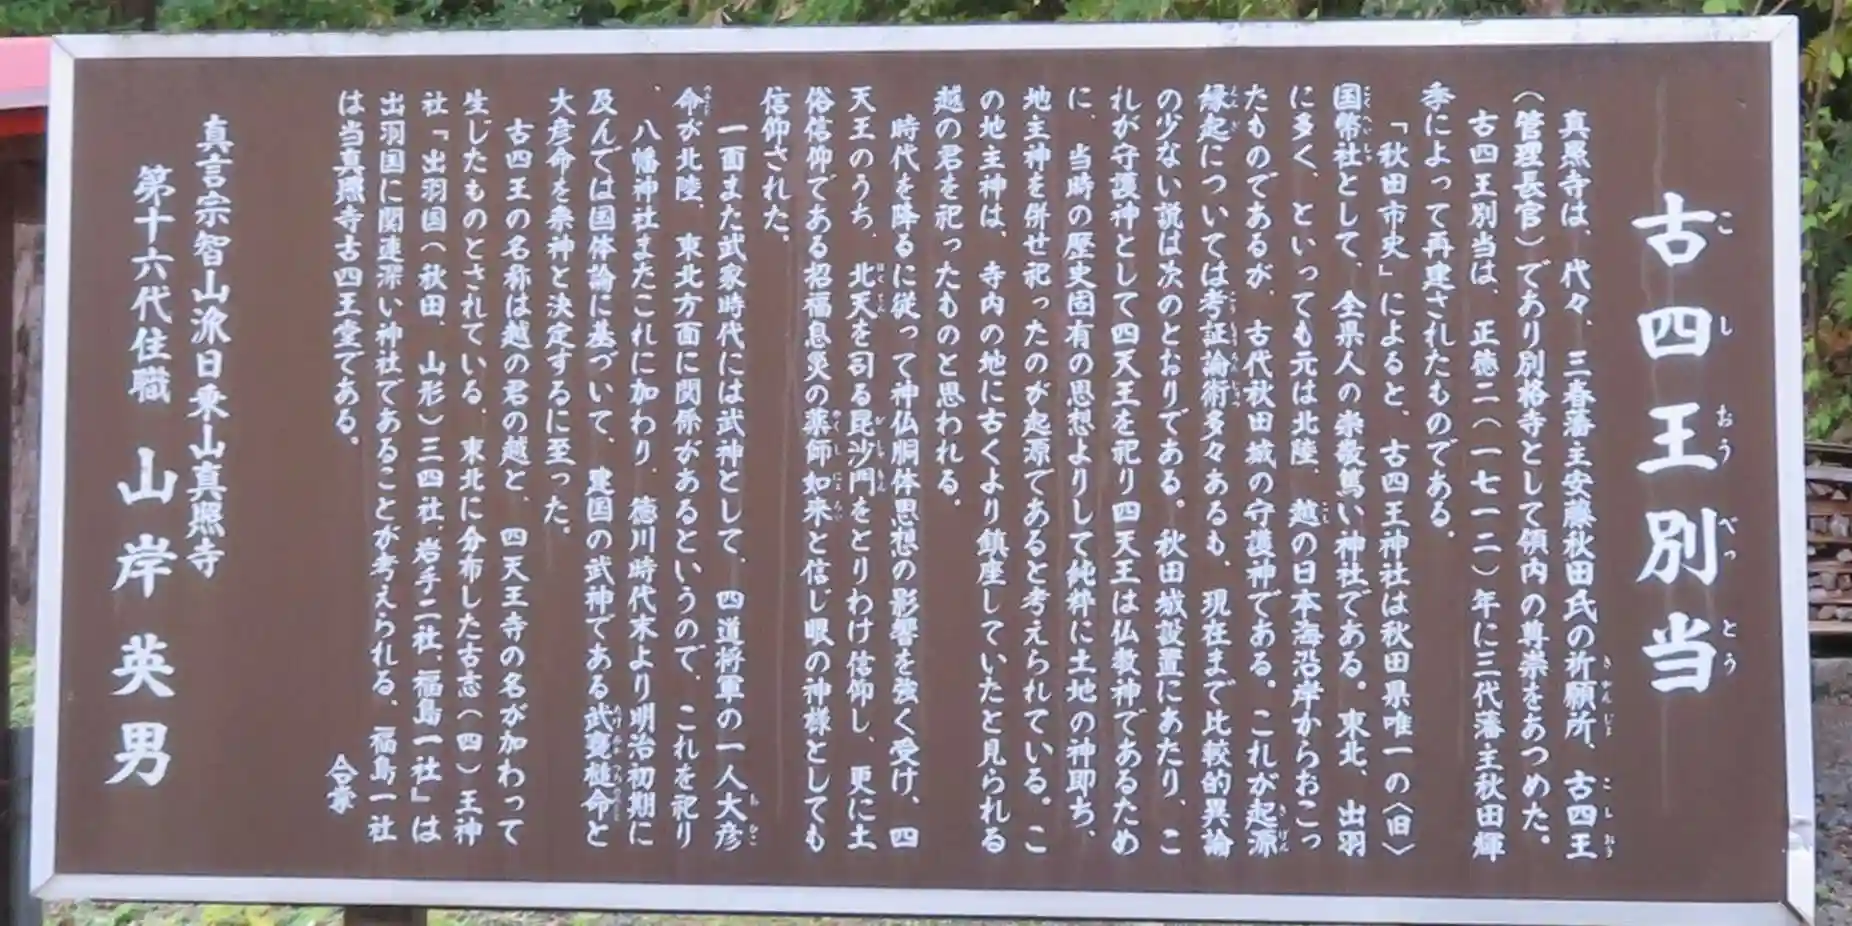 古四王別当
真照寺は、代々、三春藩主安藤秋田氏の祈願所、古四王
(管理長官)であり別格寺として領内の尊崇をあつめた。
古四王別当は、正徳二(一七一二)年に三代藩主秋田輝
季によって再建されたものである。
「秋田市史」によると、古四王神社は秋田県唯一の〈旧〉
国幣社として、全県人の崇敬篤い神社である。東北、出羽
に多く、といっても元は北陸、越の日本海沿岸からおこっ
たものであるが、古代秋田城の守護神である。これが起源
縁起については考証論術多々あるも、現在まで比較的異論
の少ない説は次のとおりである。秋田城設置にあたり、こ
れが守護神として四天王を祀り四天王は仏教神であるため
に、当時の歴史固有の思想よりして純粋に土地の神即ち、
地主神を併せ祀ったのが起源であると考えられている。こ
の地主神は、寺内の地に古くより鎮座していたと見られる
越の君を祀ったものと思われる。
時代を降るに従って神仏胴体思想の影響を強く受け、四
天王のうち、北天を司る毘沙門をとりわけ信仰し、更に土
俗信仰である招福息災の薬師如来と信じ眼の神様としても
信仰された。
一面また武家時代には武神として、四道将軍の一人大彦
命が北陸、東北方面に関係があるというので、これを祀り
、八幡神社またこれに加わり、徳川時代末より明治初期に
及んでは国体論に基づいて、建国の武神である武甕槌命と
大彦命を祭神と決定するに至った。
古四王の名称は越の君の越と、四天王寺の名が加わって
生じたものとされている。東北に分布した古志(四)王神
社「出羽国(秋田、山形)三四社、岩手二社、福島一社」は
出羽国に関連深い神社であることが考えられる、福島一社
は当真照寺古四王堂である。
合掌
真言宗智山派日乗山真照寺
第十六代住職 山岸英男